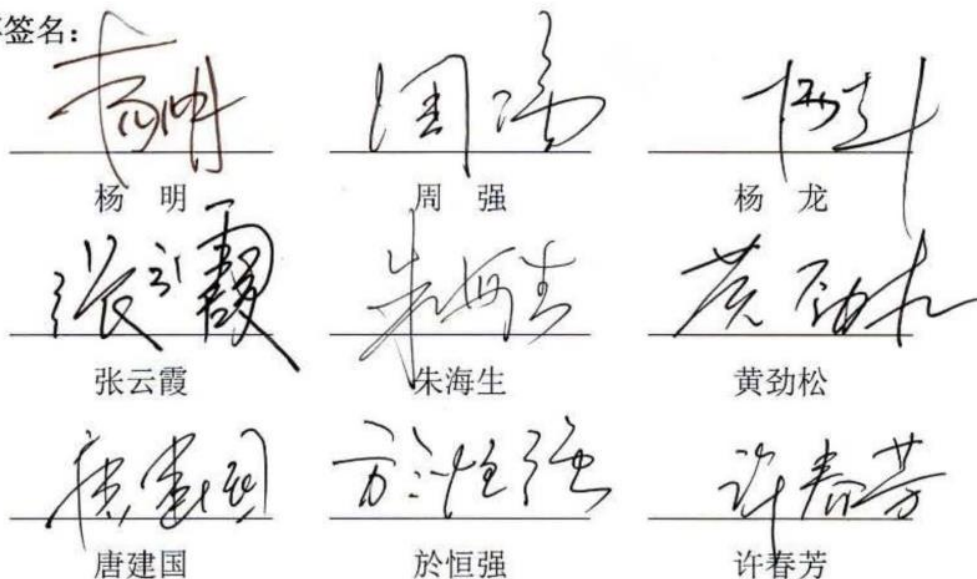 签名：
杨明 周强 杨龙
杨 明 周 强 杨 龙
张云霞 朱海生 黄劲松
张云霞 朱海生 黄劲松
唐建国 於恒强 许春芳
唐建国 於恒强 许春芳